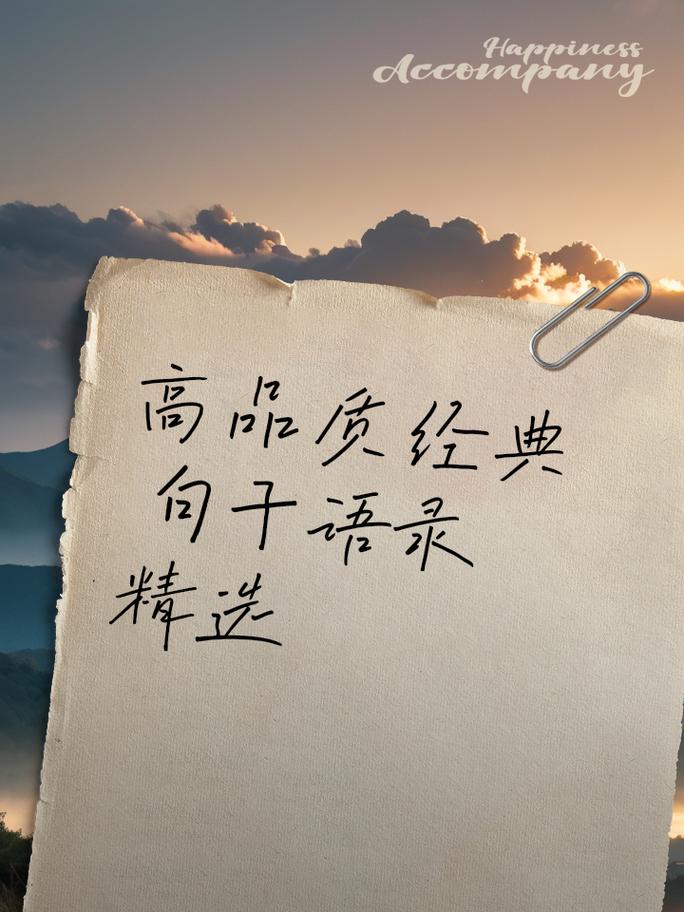 Happiness
Accompany
高品质经典
句子语录
精选